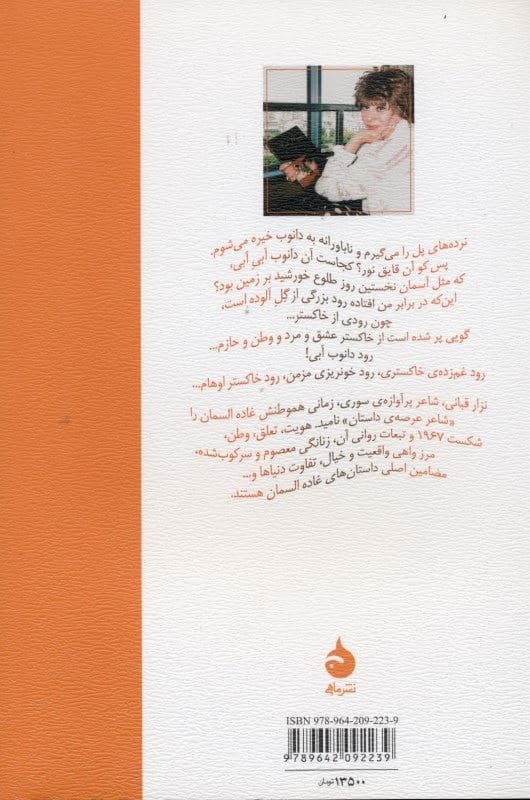 نرده‌های پل را می‌گیرم و ناباورانه به دانوب خیره می‌شوم.
پس کو آن قایق نور؟ کجاست آن دانوب آبیِ آبی،
که مثل آسمان نخستین روز طلوع خورشید بر زمین بود؟
این‌که در برابر من افتاده رود بزرگی از گِلِ آلوده است،
چون رودی از خاکستر...
گویی پر شده است از خاکستر عشق و مرد و وطن و حازم...
رود دانوب آبی!
رود غم‌زده‌ی خاکستری، رود خونریزی مزمن، رود خاکستر اوهام...
نزار قبانی، شاعر پرآوازه‌ی سوری، زمانی هموطنش غاده السمان را
«شاعر عرصه‌ی داستان» نامید. هویت، تعلق، وطن،
شکست ۱۹۶۷ و تبعات روانی آن، زنانگی معصوم و سرکوب‌شده،
مرز واهی واقعیت و خیال، تفاوت دنیاها و...
مضامین اصلی داستان‌های غاده السمان هستند.
نشر ماهی
ISBN 978-964-209-223-9
9 789642 092239
۱۳۵۰۰ تومان